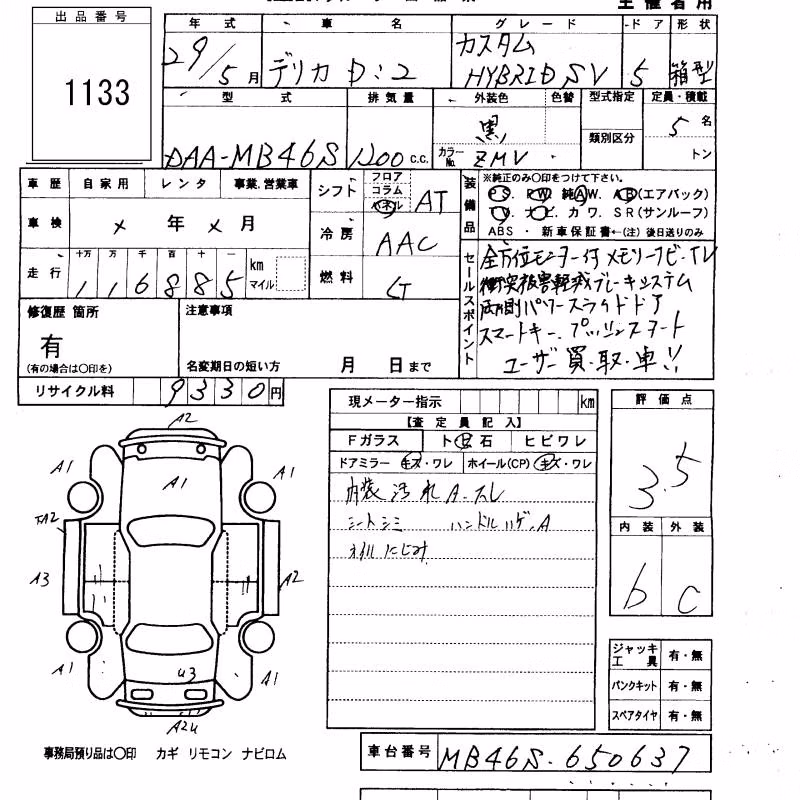 出品番号
1133
年 式 車 名 グレード ドア 形状
29/5月 デリカD:2 カスタム HYBRID SV 5 箱型
型 式 排気量 外装色 色替 型式指定 定員・積載
DAA-MB46S 1200c.c. 黒 類別区分 5名
カラーNo. ZMV トン
車歴 自家用 レンタ 事業.営業車
車検 × 年 × 月
十万 万 千 百 十 一
走行 116885 km マイル
シフト フロア コラム パネル AT
冷房 AAC
燃料 G
装備品 ※純正のみ〇印をつけて下さい。
PS. PW. 純AW. AB(エアバック)
TV. ナビ. カワ. SR(サンルーフ)
ABS ・ 新車保証書←(注) 後日送りのみ
セールスポイント
全方位モニター付メモリーナビ・TV
衝突被害軽減ブレーキシステム
両側パワースライドドア
スマートキー、プッシュスタート
ユーザー買取車!!
修復歴 箇所 注意事項
有
(有の場合は〇印を) 名変期日の短い方 月 日まで
リサイクル料 9330円
現メーター指示 km
【査定員記入】
Fガラス ト 石 ヒビワレ
ドアミラー キズ・ワレ ホイール(CP) キズ・ワレ
内装汚れA.スレ
シートシミ ハンドルハゲA
オイルにじみ
評価点
3.5
内装 外装
b C
ジャッキ工具 有・無
パンクキット 有・無
スペアタイヤ 有・無
A2
A1 A1 A1
A2
A3 A2
A1 U3 A1
A2U
事務局預り品は〇印 カギ リモコン ナビロム
車台番号 MB46S-650637